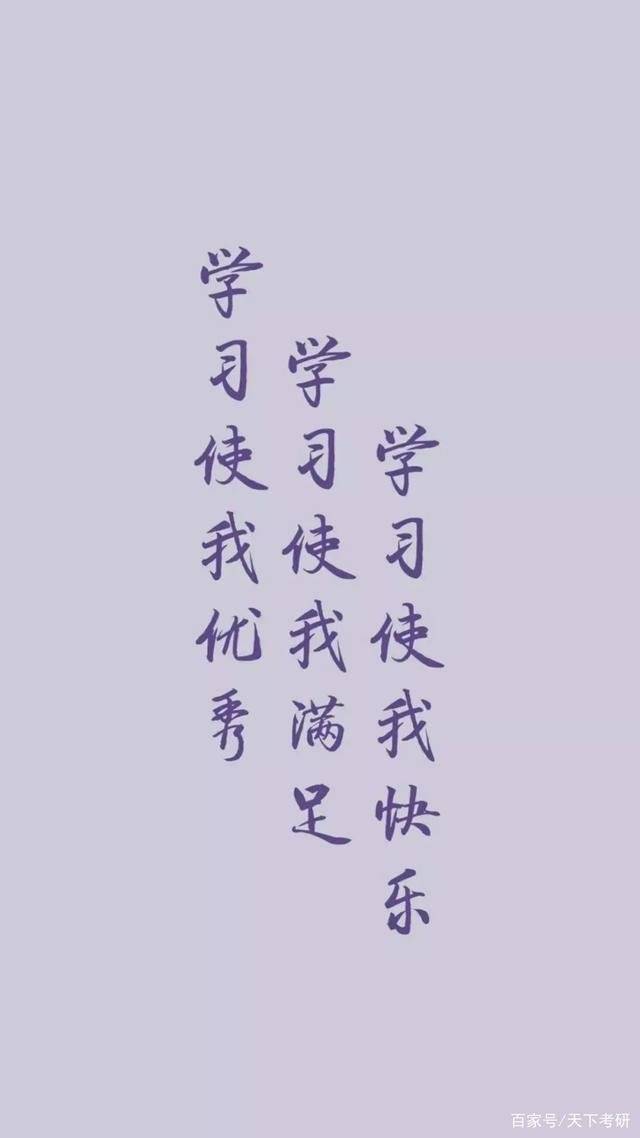 学习使我优秀
学习使我满足
学习使我快乐
百家号/天下考研